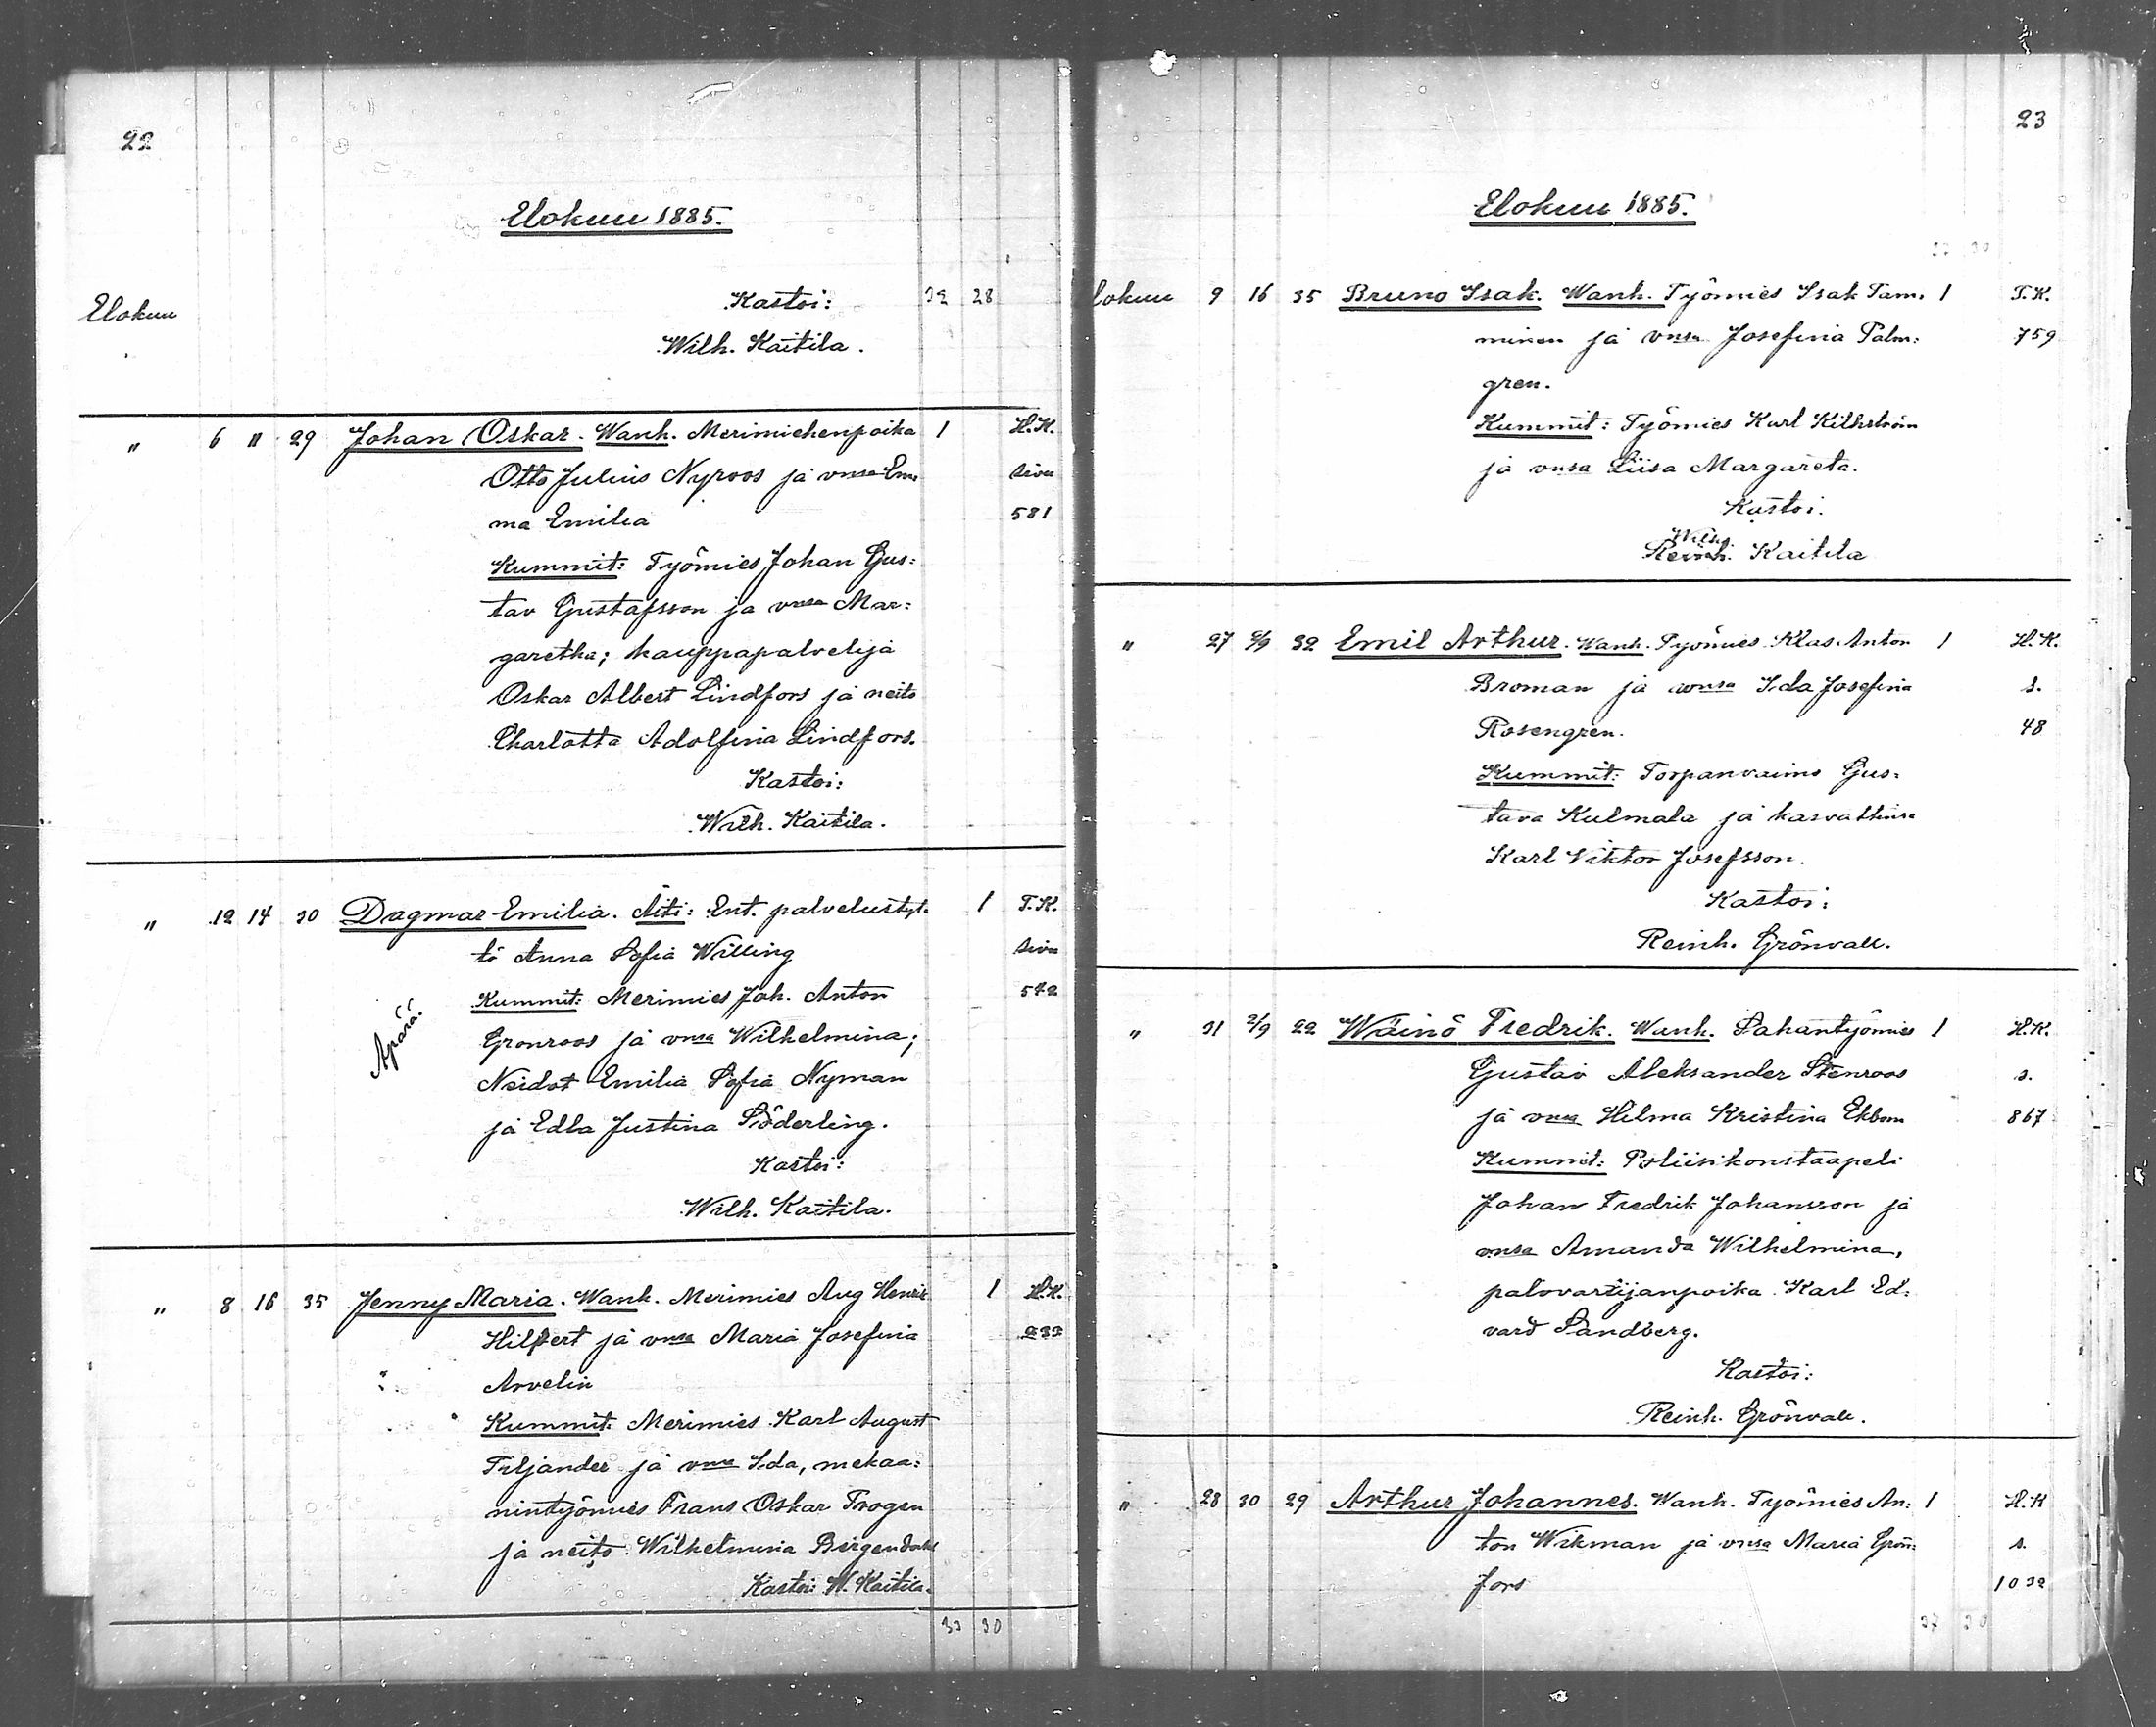 22
Elokuu 1885.
Elokuu Kastoi: 32 28
Wilh. Kaitila.
" 6 11 29 Johan Oskar. Wanh. Merimiehenpoika 1 H.K.
Otto Julius Nyroos ja vmsa Em: sivu
ma Emilia 581
Kummit: Työmies Johan Gus:
tav Gustafsson ja vmsa Mar:
garetha; kauppapalvelija
Oskar Albert Lindfors ja neito
Charlotta Adolfina Lindfors.
Kastoi:
Wilh. Kaitila.
" 12 14 30 Dagmar Emilia. Äiti: Ent. palvelustyt: 1 T.K.
tö Anna Sofia Willing sivu
Kummit: Merimies Joh. Anton 542
Äpärä.
Gronroos ja vmsa Wilhelmina;
Neidot Emilia Sofia Nyman
ja Edla Justina Söderling.
Kastoi:
Wilh. Kaitila.
" 8 16 35 Jenny Maria. Wanh. Merimies Aug Henrik 1 H.K.
Hilpert ja vmsa Maria Josefina 232
Arvelin
Kummit: Merimies Karl August
Tiljander ja vmsa Ida, mekaa:
nintyömies Frans Oskar Trogen
ja neito Wilhelmina Bergendahl
Kastoi: W. Kaitila.
33 30
23
Elokuu 1885.
37 30
lokuu 9 16 35 Bruno Isak. Wanh. Työmies Isak Tam: 1 T.K.
minen ja vmsa Josefina Palm: 759
gren.
Kummit: Työmies Karl Kilhström
ja vmsa Liisa Margareta.
Kastoi.
Wilh.
Reinh. Kaitila
" 27 2/9 32 Emil Arthur. Wanh. Työmies Klas Anton 1 H.K.
Broman ja vmsa Ida Josefina s.
Rosengren. 48
Kummit: Torpanvaimo Gus:
tava Kulmala ja kasvattinsa
Karl Viktor Josefsson.
Kastoi:
Reinh. Grönvall.
" 31 2/9 22 Wäinö Fredrik. Wanh. Sahantyömies 1 H.K.
Gustav Aleksander Stenroos s.
ja vmsa Hilma Kristina Ekbom 867
Kummit: Poliisikonstaapeli
Johan Fredrik Johansson ja
vmsa Amanda Wilhelmina,
palovartijanpoika Karl Ed:
vard Sandberg.
Kastoi:
Reinh. Grönvall.
" 28 30 29 Arthur Johannes. Wanh. Työmies An: 1 H.K
ton Wikman ja vmsa Maria Grön: s.
fors 1032
37 30